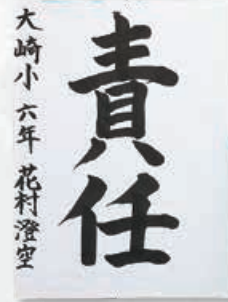 責任
大崎小 六年 花村澄空